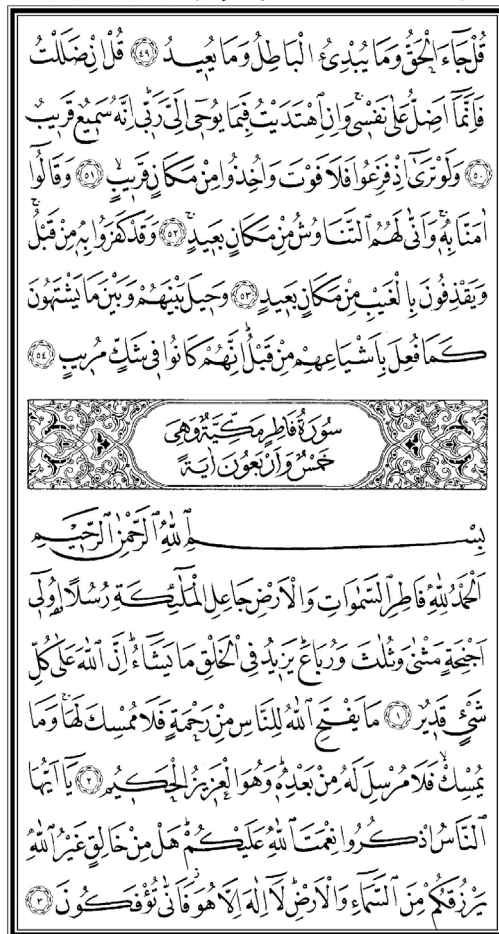 قُلْ جَٓاءَ الْحَقُّ وَمَا يُبْدِئُ الْبَاطِلُ وَمَا يُع۪يدُ ﴿٤٩﴾ قُلْ اِنْ ضَلَلْتُ
فَاِنَّمَٓا اَضِلُّ عَلٰى نَفْس۪يۚ وَاِنِ اهْتَدَيْتُ فَبِمَا يُوح۪ٓي اِلَيَّ رَبّ۪يۜ اِنَّهُ سَم۪يعٌ قَر۪يبٌ
﴿٥٠﴾ وَلَوْ تَرٰٓى اِذْ فَزِعُوا فَلَا فَوْتَ وَاُخِذُوا مِنْ مَكَانٍ قَر۪يبٍۙ ﴿٥١﴾ وَقَالُٓوا
اٰمَنَّا بِه۪ۚ وَاَنّٰى لَهُمُ التَّنَاوُشُ مِنْ مَكَانٍ بَع۪يدٍۚ ﴿٥٢﴾ وَقَدْ كَفَرُوا بِه۪ مِنْ قَبْلُۚ
وَيَقْذِفُونَ بِالْغَيْبِ مِنْ مَكَانٍ بَع۪يدٍ ﴿٥٣﴾ وَح۪يلَ بَيْنَهُمْ وَبَيْنَ مَا يَشْتَهُونَ
كَمَا فُعِلَ بِاَشْيَاعِهِمْ مِنْ قَبْلُۜ اِنَّهُمْ كَانُوا ف۪ي شَكٍّ مُر۪يبٍ ﴿٥٤﴾
سُورَةُ فَاطِرٍ مَكِّيَّةٌ وَهِيَ
خَمْسٌ وَاَرْبَعُونَ اٰيَةً
بِسْمِ اللّٰهِ الرَّحْمٰنِ الرَّح۪يمِ
اَلْحَمْدُ لِلّٰهِ فَاطِرِ السَّمٰوَاتِ وَالْاَرْضِ جَاعِلِ الْمَلٰٓئِكَةِ رُسُلًا اُو۬ل۪ٓي
اَجْنِحَةٍ مَثْنٰى وَثُلٰثَ وَرُبَاعَۜ يَز۪يدُ فِي الْخَلْقِ مَا يَشَٓاءُۜ اِنَّ اللّٰهَ عَلٰى كُلِّ
شَيْءٍ قَد۪يرٌ ﴿١﴾ مَا يَفْتَحِ اللّٰهُ لِلنَّاسِ مِنْ رَحْمَةٍ فَلَا مُمْسِكَ لَهَاۚ وَمَا
يُمْسِكْۙ فَلَا مُرْسِلَ لَهُ مِنْ بَعْدِه۪ۜ وَهُوَ الْعَز۪يزُ الْحَك۪يمُ ﴿٢﴾ يَٓا اَيُّهَا
النَّاسُ اذْكُرُوا نِعْمَتَ اللّٰهِ عَلَيْكُمْۜ هَلْ مِنْ خَالِقٍ غَيْرُ اللّٰهِ
يَرْزُقُكُمْ مِنَ السَّمَٓاءِ وَالْاَرْضِۜ لَٓا اِلٰهَ اِلَّا هُوَۘ فَاَنّٰى تُؤْفَكُونَ ﴿٣﴾